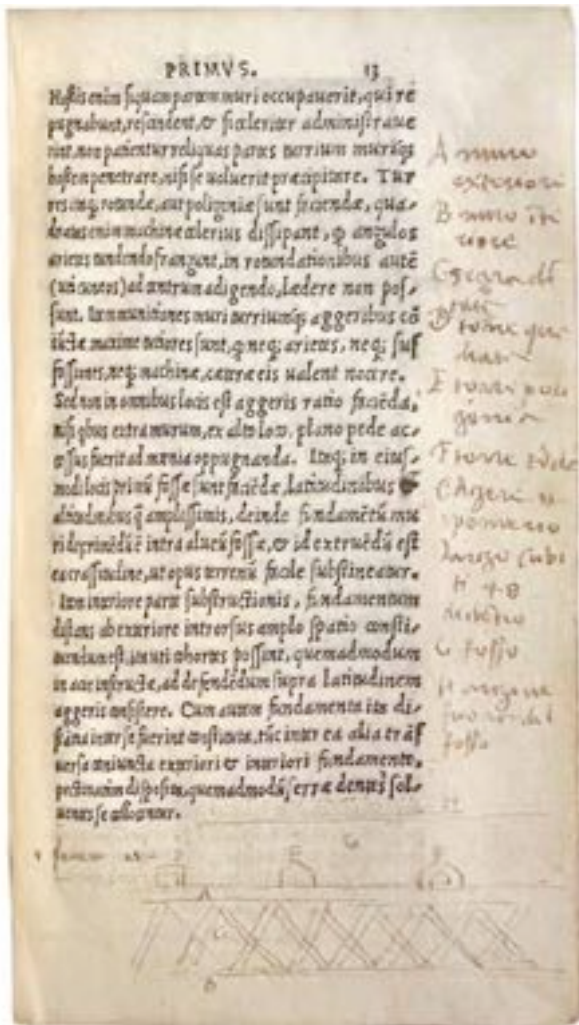 PRIMVS. 13
Hostis enim si quam partem muri occupauerit, qui re
pugnabunt, rescindent, & si celeriter administraue
rint, non patientur reliquas partes turrium muriq́ʒ
hostem penetrare, nisi se uoluerit præcipitare. Tur
res itaq; rotundæ, aut poligoniæ sunt faciendæ, qua-
dratas enim machinæ celerius dissipant, ꝙ angulos
arietes tundendo frangunt, in rotundationibus autē
(uti cuneos) ad centrum adigendo, lædere non pos-
sunt. Item munitiones muri turriumq; aggeribus cō
iūctæ maxime tutiores sunt, ꝙ neq; arietes, neq; suf
fossiones, neq; machinæ, cæteræ eis ualent nocere.
Sed non in omnibus locis est aggeris ratio faciēda,
nisi qbus extra murum, ex alto loco, plano pede ac-
cessus fuerit ad mœnia oppugnanda. Itaq; in eius-
modi locis primū fossæ sunt faciēdæ, latitudinibus &
altitudinibus q̄ amplissimis, deinde fundamētū mu
ri deprimēdū ē intra alueū fossæ, & id extruēdū est
ea crassitudine, ut opus terrenū facile substineatur.
Item interiore parte substructionis, fundamentum
distans ab exteriore introrsus amplo spatio consti-
tuendum est, ita uti cohortes possint, quemadmodum
in acie instructæ, ad defendēdum supra latitudinem
aggeris consistere. Cum autem fundamenta ita di-
stantia inter se fuerint constituta, tūc inter ea alia trāf
uersa coniuncta exteriori & interiori fundamento,
pectinatim disposita, quemadmodū serræ dentes sol-
uentes se collocantur.
A muro
exteriori
B muro ite
riore
D torre qua
drata
E torri poli
gonia
F torre
G fosso
H argine
fuori del
fosso
A
B
C
E
G
H